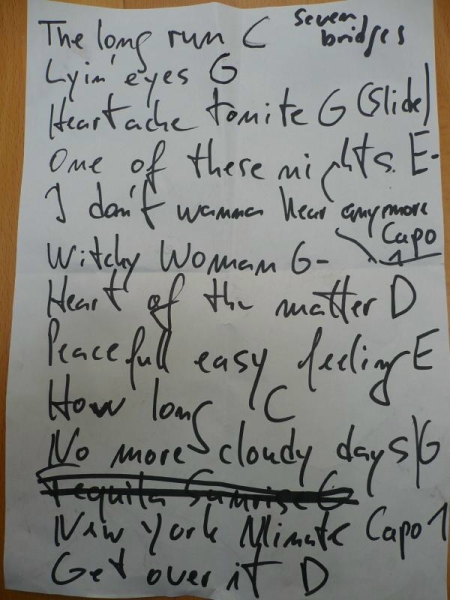 The long run C seven bridges
Lyin' eyes G
Heartache tonite G (slide)
One of these nights E-
I don't wanna hear anymore
Witchy Woman G- Capo 1
Heart of the matter D
Peacefull easy feeling E
How long C
No more cloudy days G
Tequila Sunrise G
New York Minute Capo 1
Get over it D